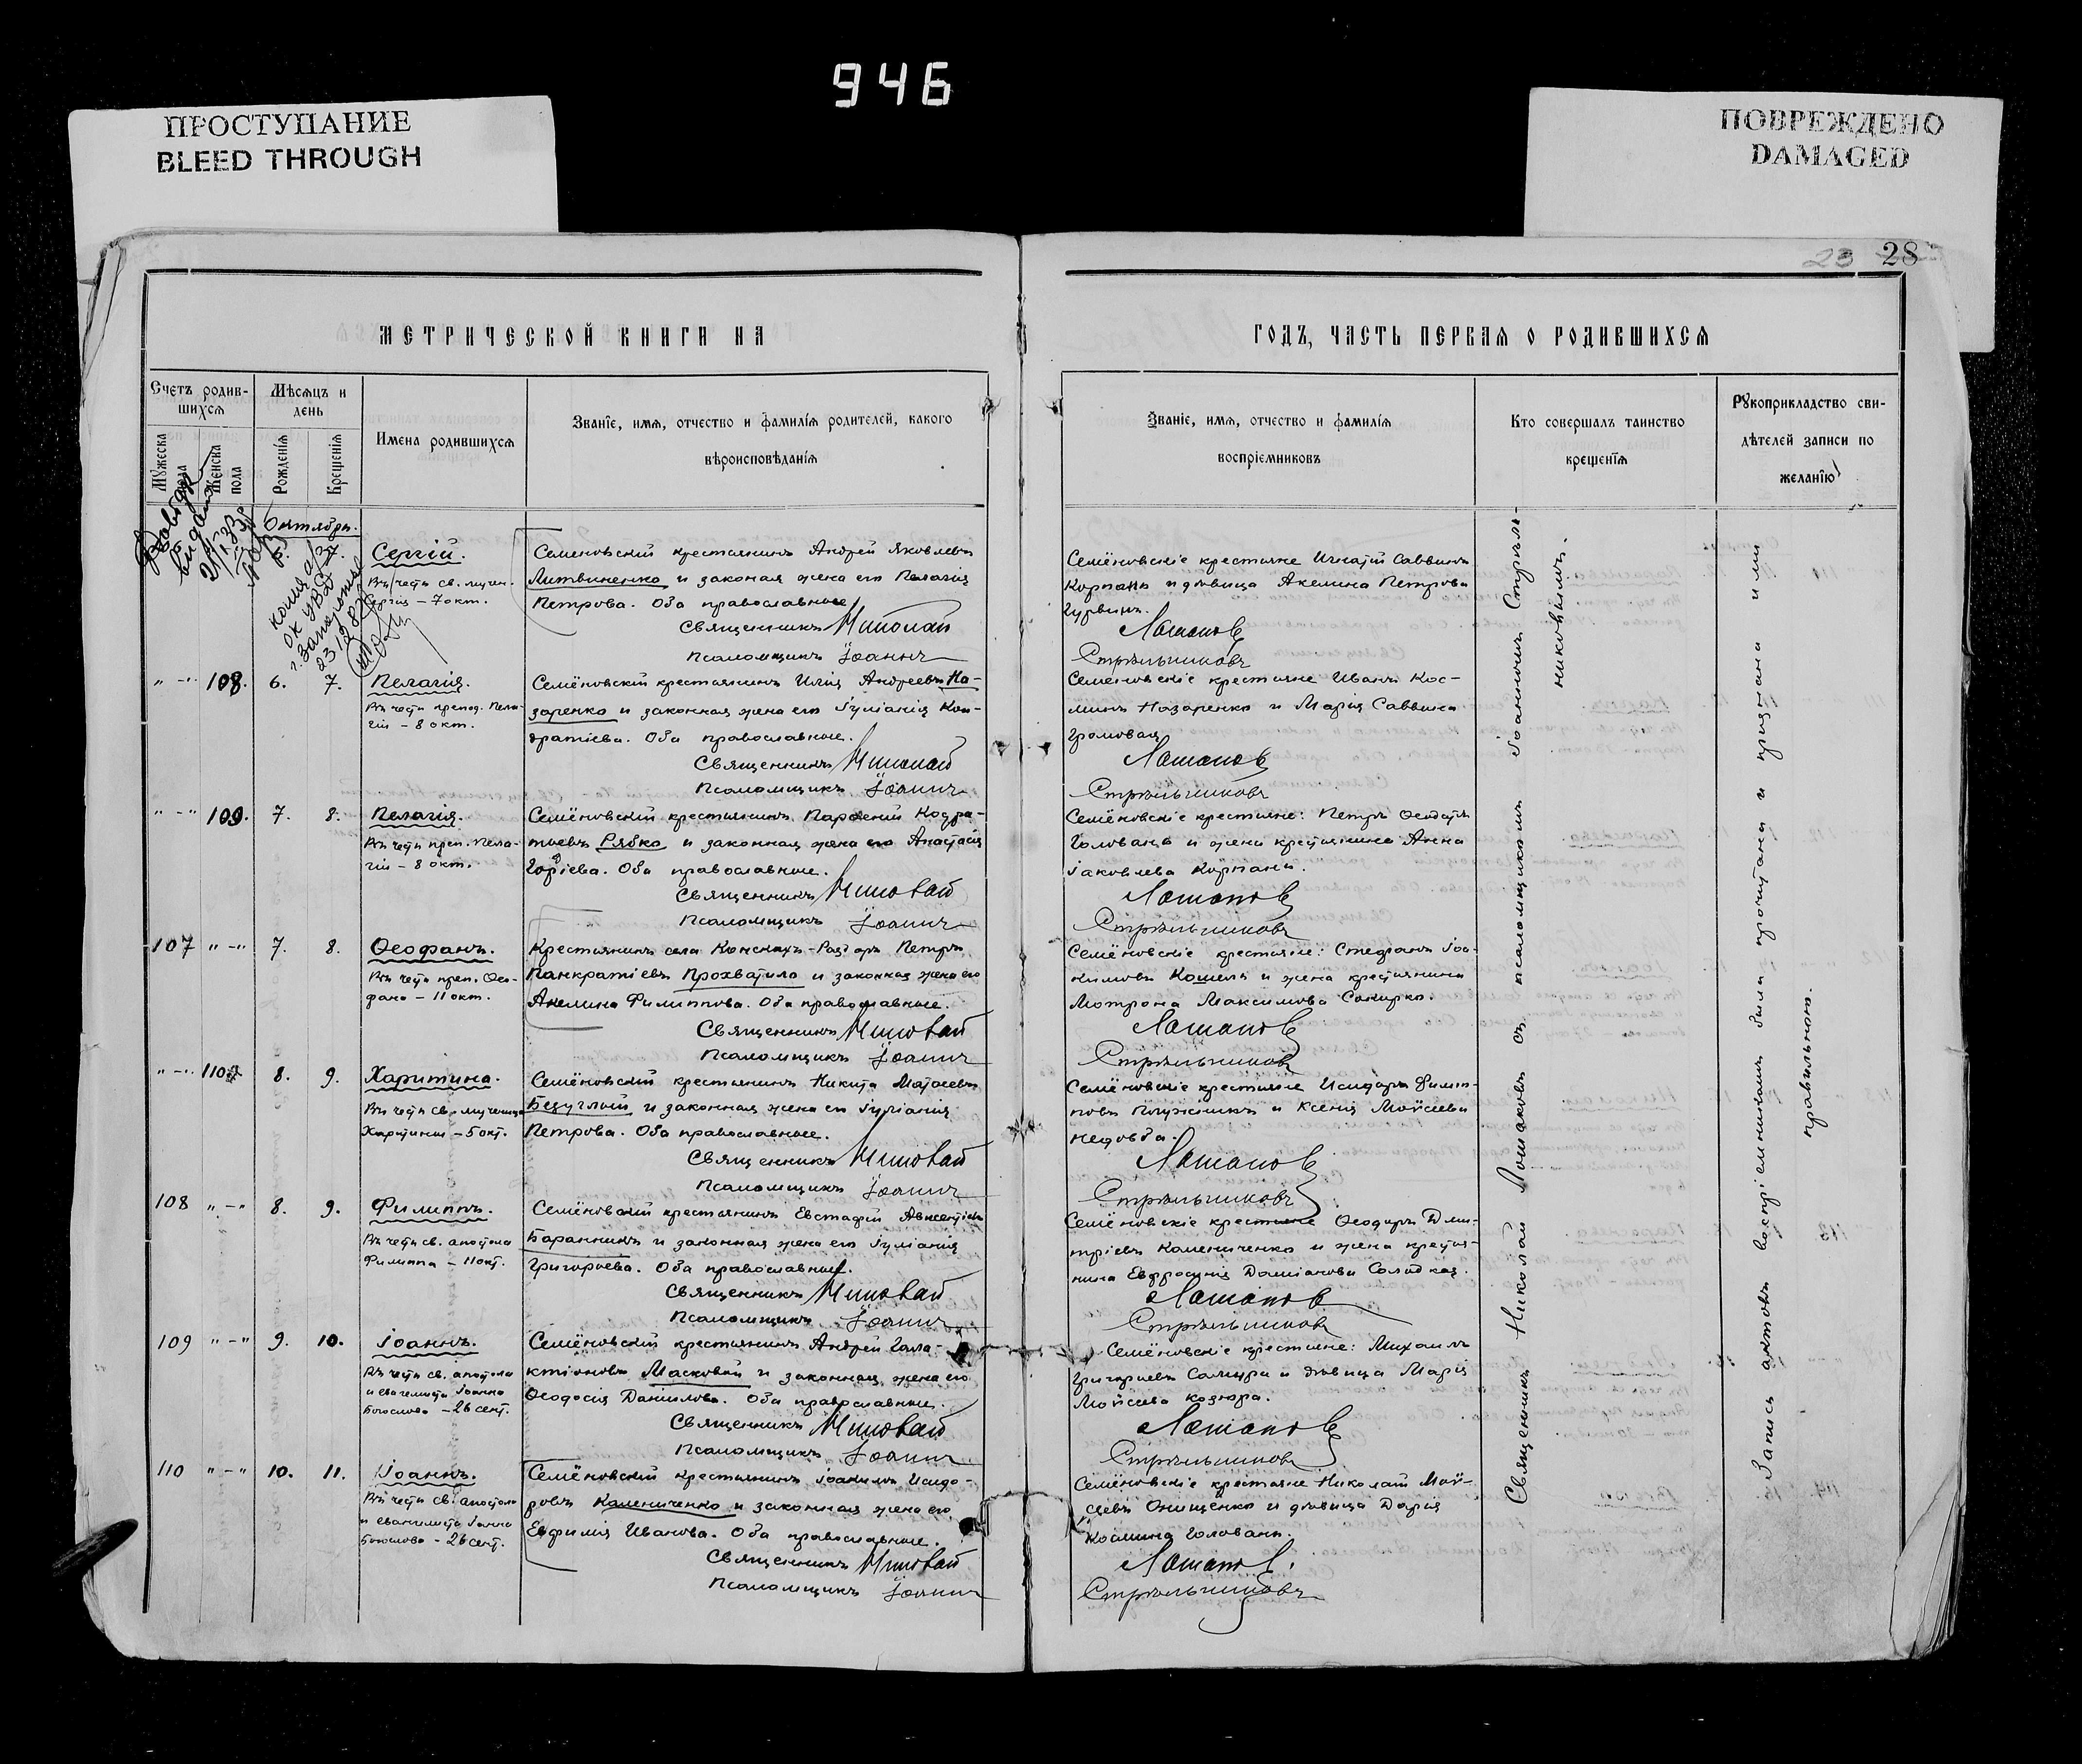 946
ПРОСТУПАНИЕ
BLEED THROUGH
ПОВРЕЖДЕНО
DAMAGED
23 28
МЕТРИЧЕСКОЙ КНИГИ НА
ГОДЪ, ЧАСТЬ ПЕРВАЯ О РОДИВШИХСЯ
Счетъ родив-
шихся
Мѣсяцъ и
день
Имена родившихся
Званіе, имя, отчество и фамилія родителей, какого
вѣроисповѣданія
Мужеска
пола
Женска
пола
Рожденія
Крещенія
Званіе, имя, отчество и фамилія
воспріемниковъ
Кто совершалъ таинство
крещенія
Рукоприкладство сви-
дѣтелей записи по
желанію
Октябрь.
7.
Сергій.
Въ честь св. мучен.
Сергія – 7 окт.
Семеновскій крестьянинъ Андрей Яковлевъ
Литвиненко и законая жена его Пелагія
Петрова. Оба православные
Священникъ Николай
Псаломщикъ Іоаннъ
Семёновскіе крестьяне Игнатій Саввинъ
Корпань и дѣвица Акелина Петрова
Лошаковъ
Стрѣльниковъ
" – " 108. 6. 7.
Пелагія.
Въ честь препод. Пела-
гіи – 8 окт.
Семёновскій крестьянинъ Илія Андреевъ На-
заренко и законная жена его Іуліанія Кон-
дратіева. Оба православные.
Священникъ Николай
Псаломщикъ Іоаннъ
Семеновскіе крестьяне Иванъ Кос-
минъ Назаренко и Марія Саввина
Громовая
Лошаковъ
Стрѣльниковъ
" – " 109. 7. 8.
Пелагія.
Въ честь преп. Пела-
гіи – 8 окт.
Семёновскій крестьянинъ Пароеній Кодра-
тьевъ Рябко и законная жена его Анастасія
Оба православные.
Священникъ Николай
Псаломщикъ Іоаннъ
Семёновскіе крестьяне: Петръ
Голованъ и жена крестьянина Анна
Іаковлева Корпань.
Лошаковъ
Стрѣльниковъ
107 " – " 7. 8.
Ѳеофанъ.
Въ честь преп. Ѳео-
фана – 11 окт.
Крестьянинъ села Конскихъ-Раздоръ Петръ
Панкратіевъ Прохватило и законная жена его
Акелина Филиппова. Оба православные.
Священникъ Николай
Псаломщикъ Іоаннъ
Семёновскіе крестьяне: Стефанъ Іоа-
кимовъ Кошель и жена крестьянина
Мотрона Максимова Сокирко.
Лошаковъ
Стрѣльниковъ
" – " 110 8. 9.
Харитина.
Въ честь св. мученицы
Харитины – 5 окт.
Семёновскій крестьянинъ Никита Матѳеевъ
Безуглый и законная жена его Іуліанія
Петрова. Оба православные.
Священникъ Николай
Псаломщикъ Іоаннъ
Семёновскіе крестьяне Исидоръ Филип-
повъ и Ксенія Моѵсеева
Лошаковъ
Стрѣльниковъ
108 " – " 8. 9.
Филиппъ.
Въ честь св. апостола
Филиппа – 11 окт.
Семёновскій крестьянинъ Евстафій Авксентіевъ
Баранникъ и законная жена его Іуліанія
Григорьева. Оба православные.
Священникъ Николай
Псаломщикъ Іоаннъ
Семёновскіе крестьяне Ѳеодоръ Дми-
тріевъ Колениченко и жена крестья-
нина Евфросинія Даміанова Солодкая.
Лошаковъ
Стрѣльниковъ
109 " – " 9. 10.
Іоаннъ.
Въ честь св. апостола
и евангелиста Іоанна
Богослова – 26 сент.
Семёновскій крестьянинъ Андрей Гала-
ктіоновъ Масковой и законная жена его
Ѳеодосія Даніилова. Оба православные.
Священникъ Николай
Псаломщикъ Іоаннъ
Семёновскіе крестьяне: Михаилъ
Григорьевъ и дѣвица Марія
Моѵсеева Козюра.
Лошаковъ
Стрѣльниковъ
110 " – " 10. 11.
Іоаннъ.
Въ честь св. апостола
и евангелиста Іоанна
Богослова – 26 сент.
Семёновскій крестьянинъ Іоакимъ Исидо-
ровъ Колениченко и законная жена его
Евфимія Иванова. Оба православные.
Священникъ Николай
Псаломщикъ Іоаннъ
Семёновскіе крестьяне Николай Моѵ-
сеевъ Онищенко и дѣвица Дарія
Космина Головань.
Лошаковъ.
Стрѣльниковъ
Священникъ Николай Лошаковъ съ псаломщикомъ Іоанномъ Стрѣль-
никовымъ.
Запись актовъ воспріемниками была прочитана и признана ими
правильною.